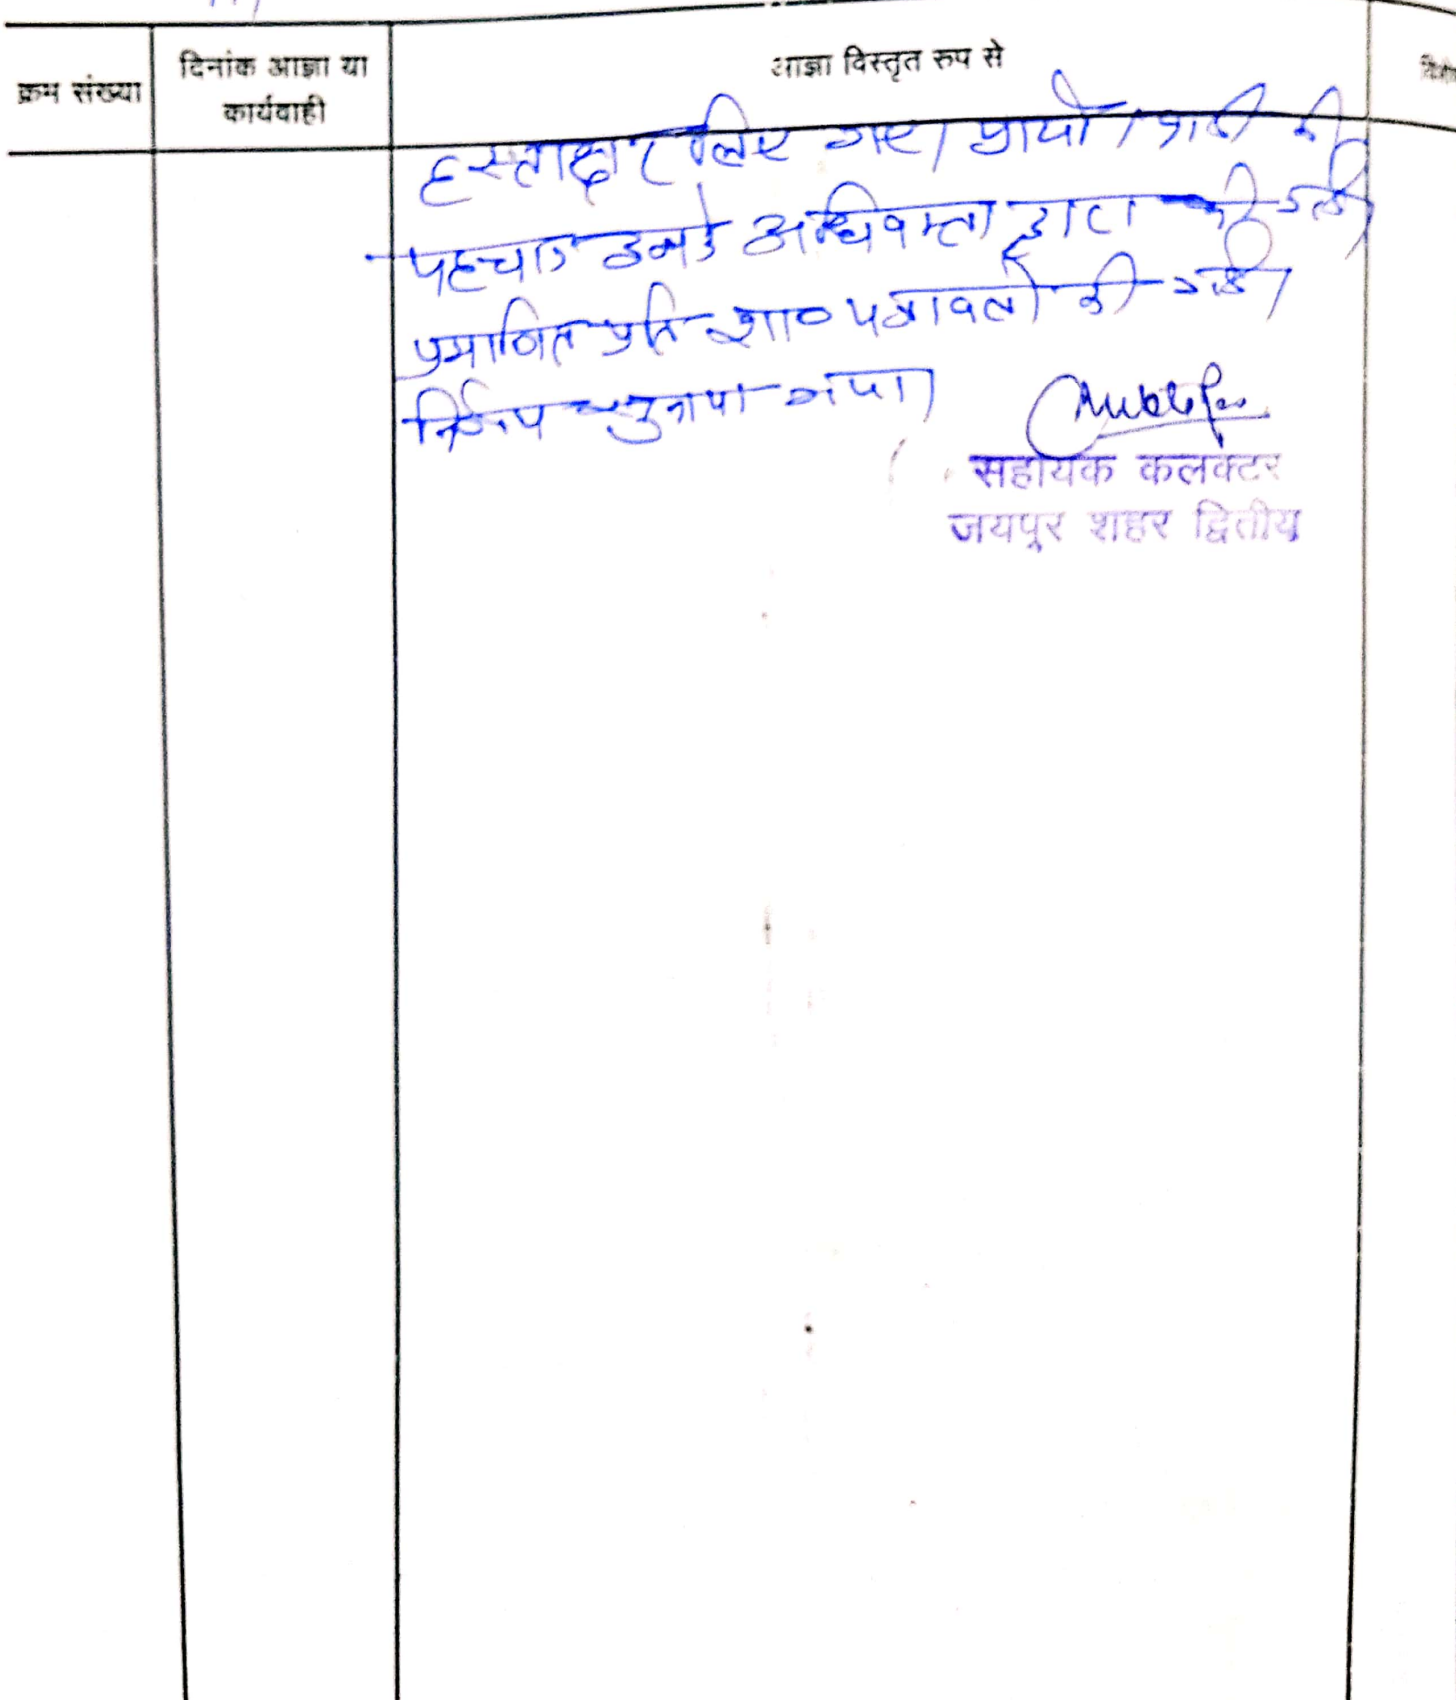 क्रम संख्या
दिनांक आज्ञा या
कार्यवाही
आज्ञा विस्तृत रुप से
हस्ताक्षर लिए गए। प्रार्थी / की
पहचान उनके अधिवक्ता द्वारा की गई।
प्रमाणित प्रति शा० पत्रावली की गई।
निर्णय सुनाया गया।
सहायक कलक्टर
जयपुर शहर द्वितीय